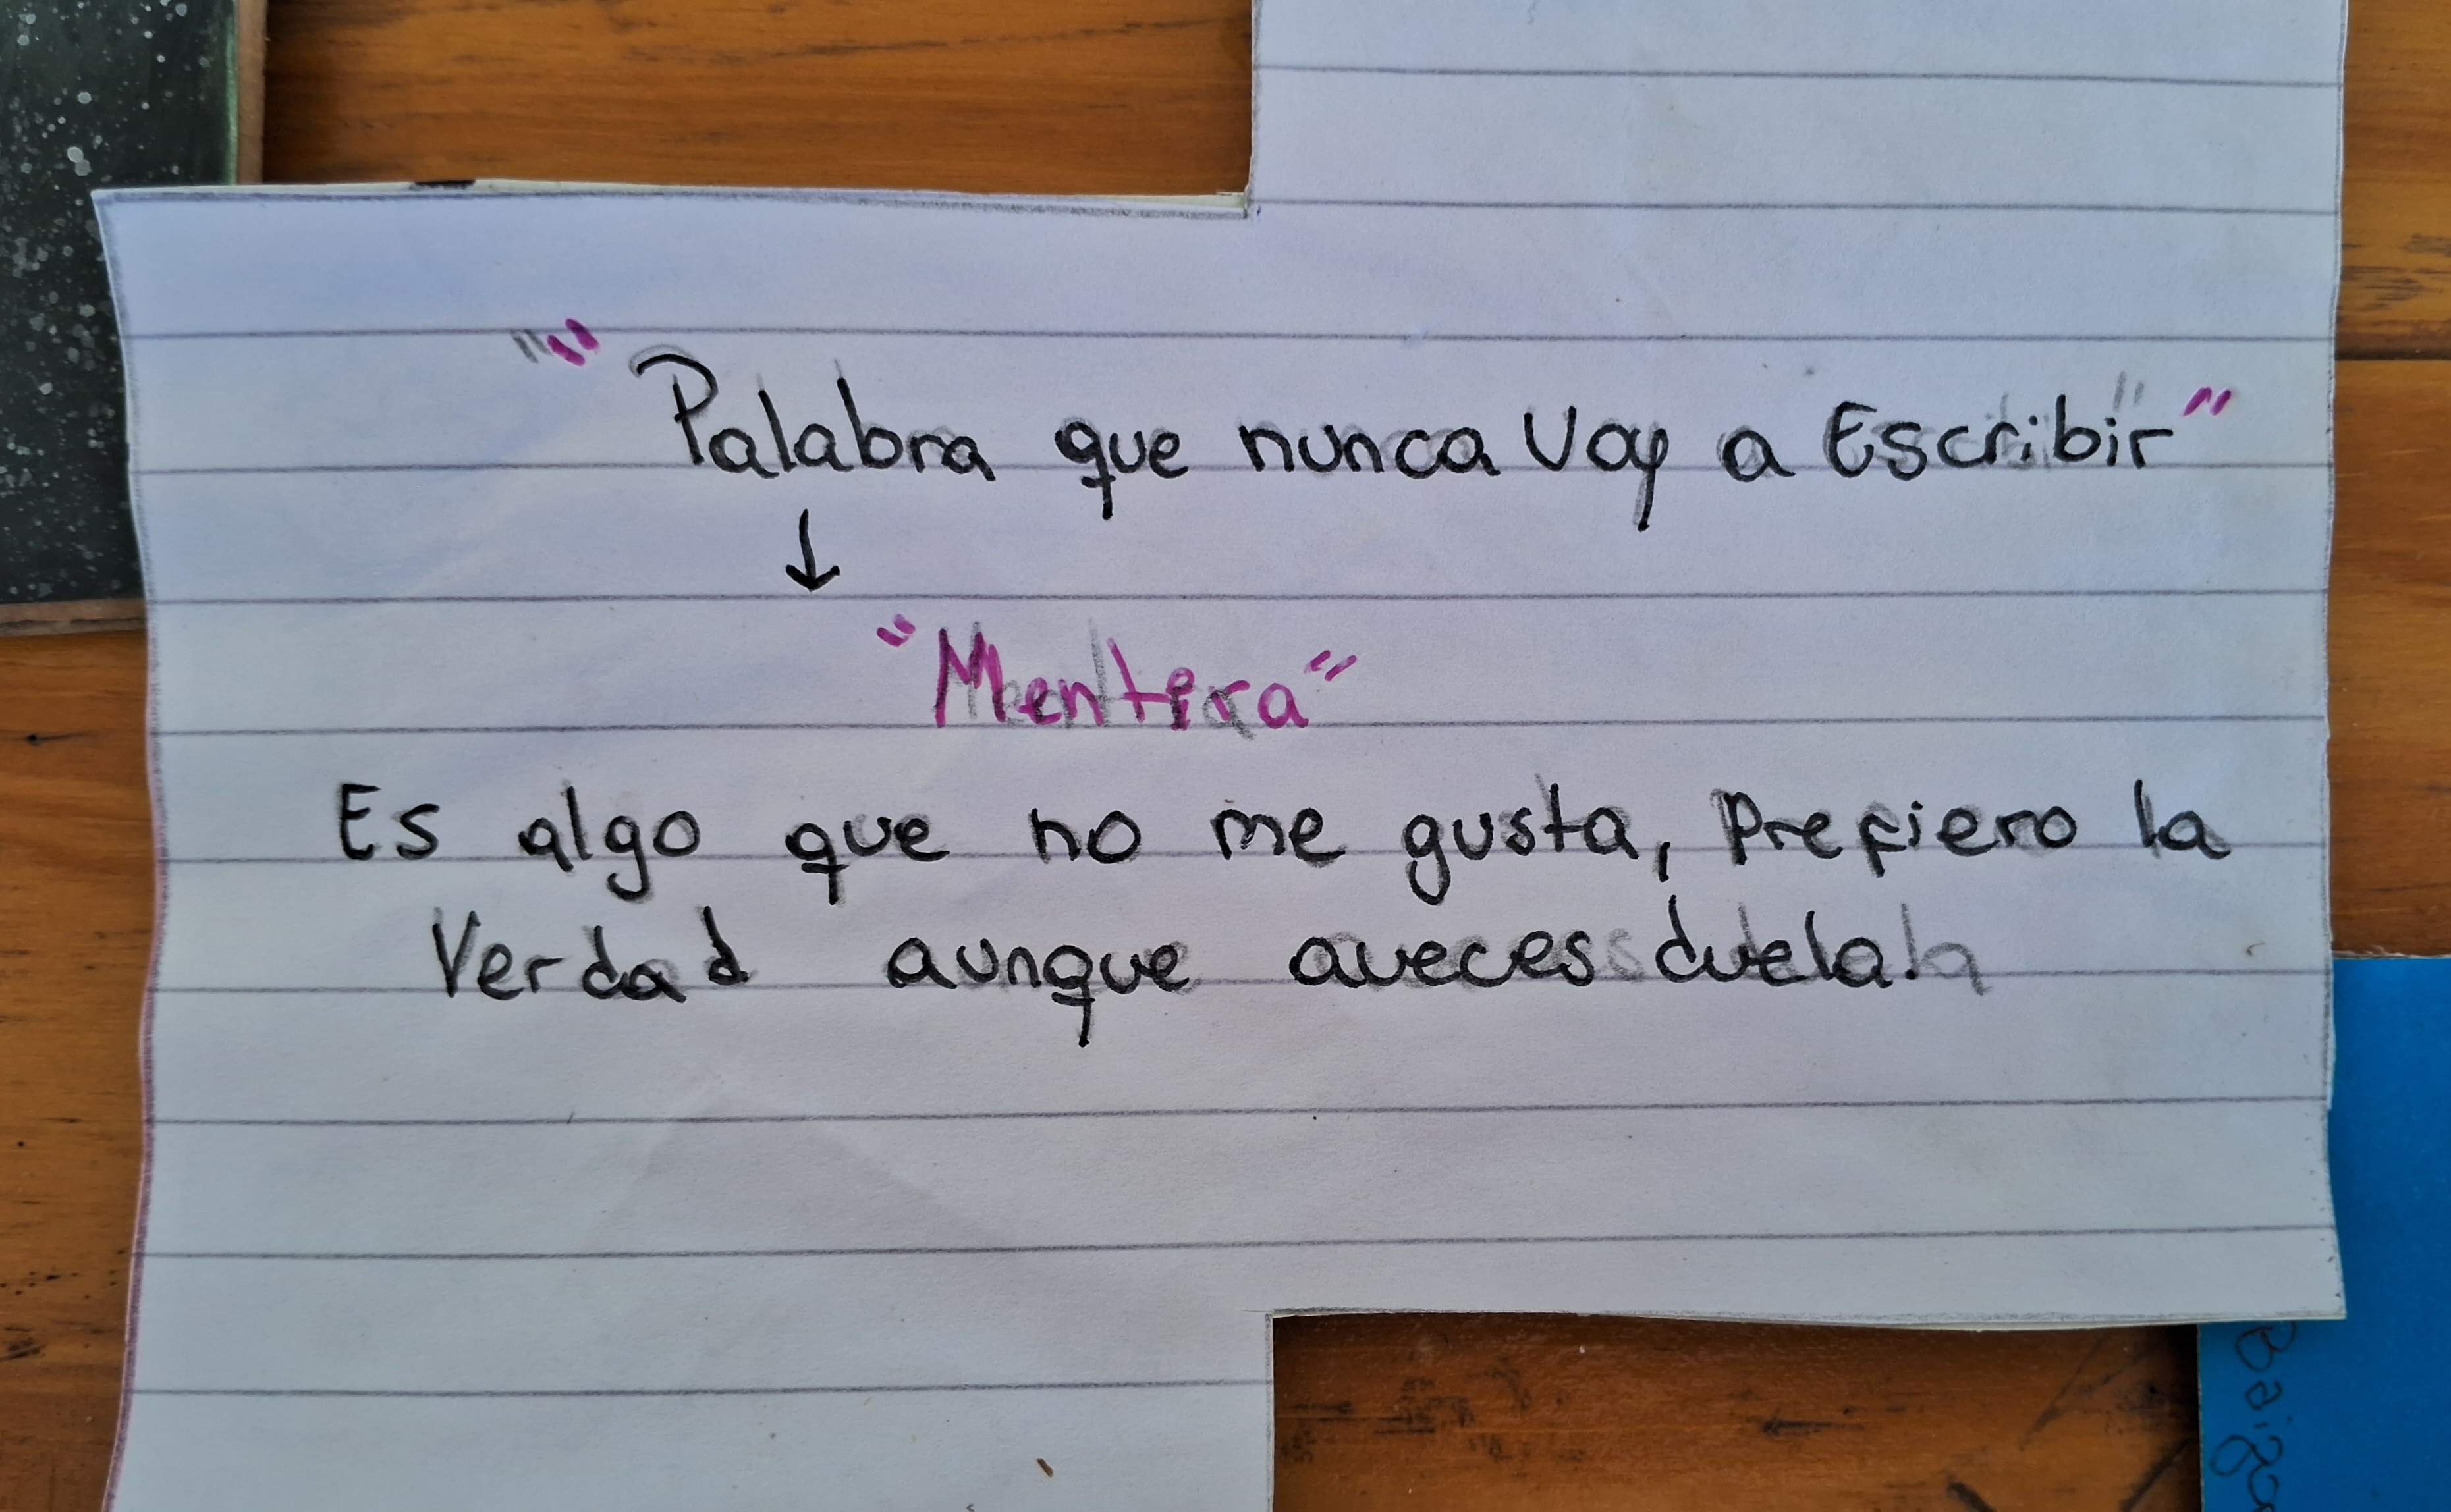 "Palabra que nunca Voy a Escribir"
↓
"Mentira"
Es algo que no me gusta, Prefiero la
Verdad aunque aveces duela.